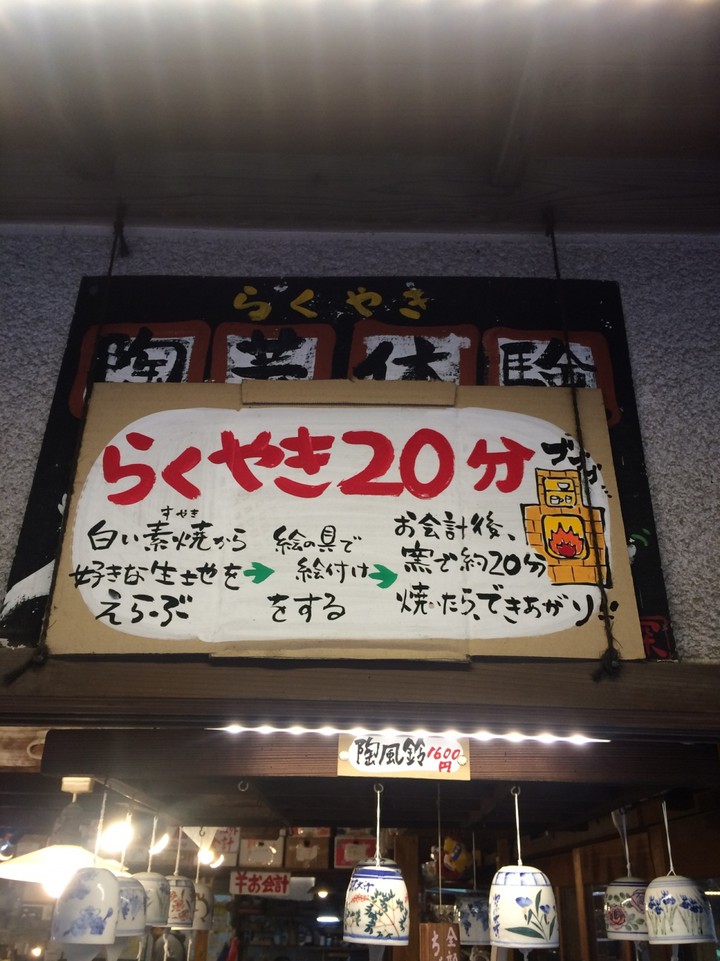 らくやき
陶芸体験
らくやき20分
ゴゴゴ…
すやき
白い素焼から
好きな生地を
えらぶ
→
絵の具で
絵付け
をする
→
お会計後、
窯で約20分
焼いたら、できあがり!!
陶風鈴 1600円
お会計